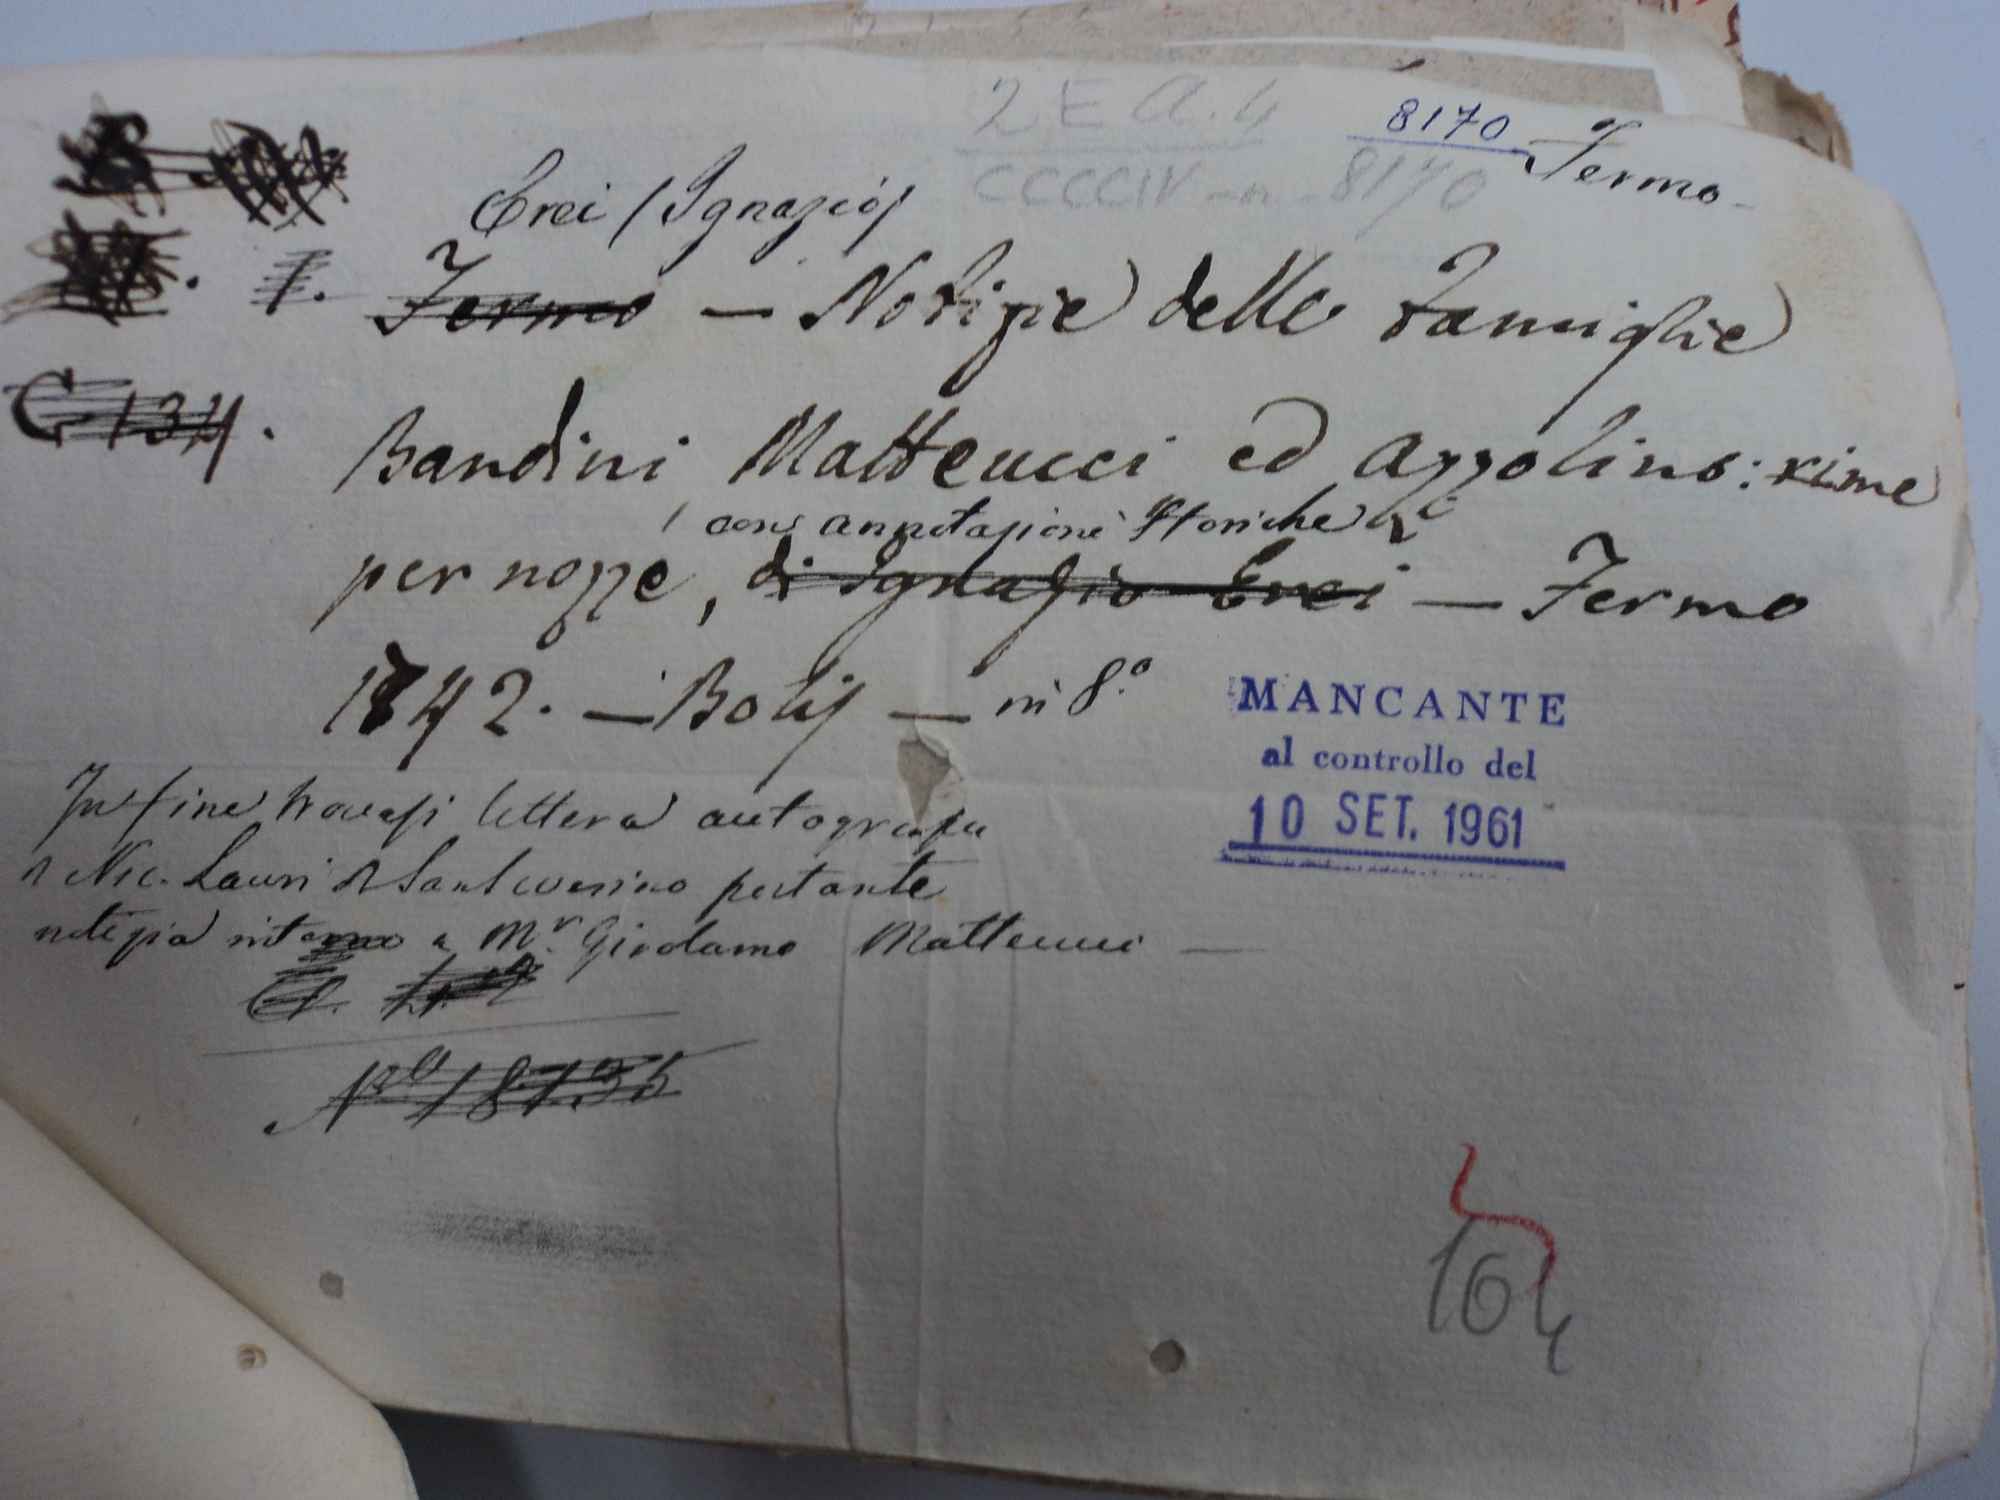 2 E a. 4
8170
Fermo
CCCCIV - n - 8170
Erei (Ignazio)
1. Fermo — Notizie delle Famiglie
C 134.
Bandini Matteucci ed Azzolino: rime
con annotazioni storiche
per nozze, di Ignazio Erei — Fermo
1842. — Bolis — in 8.°
MANCANTE
al controllo del
10 SET. 1961
In fine trovasi lettera autografa
Nic. Lauri Sanseverino portante
notizia intorno a M.r Girolamo Matteucci —
N.° 18135
164